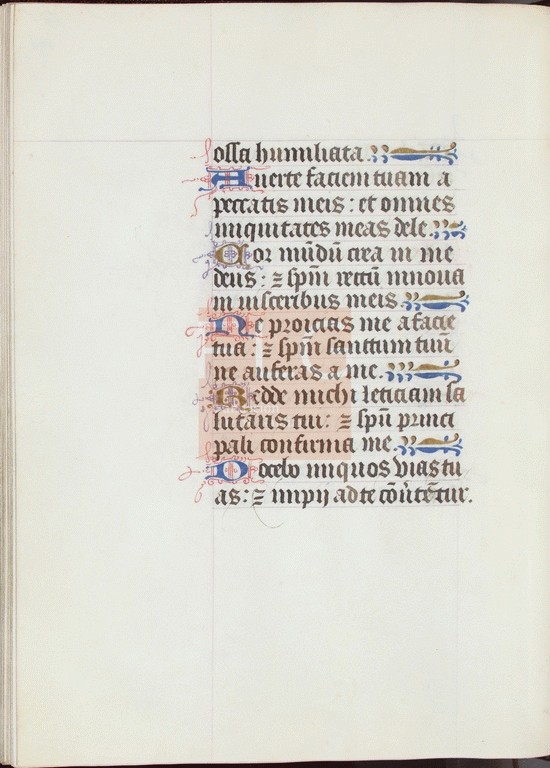 ossa humiliata.
Auerte faciem tuam a
peccatis meis : et omnes
iniquitates meas dele.
Cor mũdũ crea in me
deus : ⁊ spm̃ rectũ innoua
in uisceribus meis.
Ne proicias me a facie
tua : ⁊ spm̃ sanctum tuũ
ne auferas a me.
Redde michi leticiam sa
lutaris tui : ⁊ spũ princi
pali confirma me.
Docebo iniquos vias tu
as : ⁊ impij ad te cõũtẽtur.